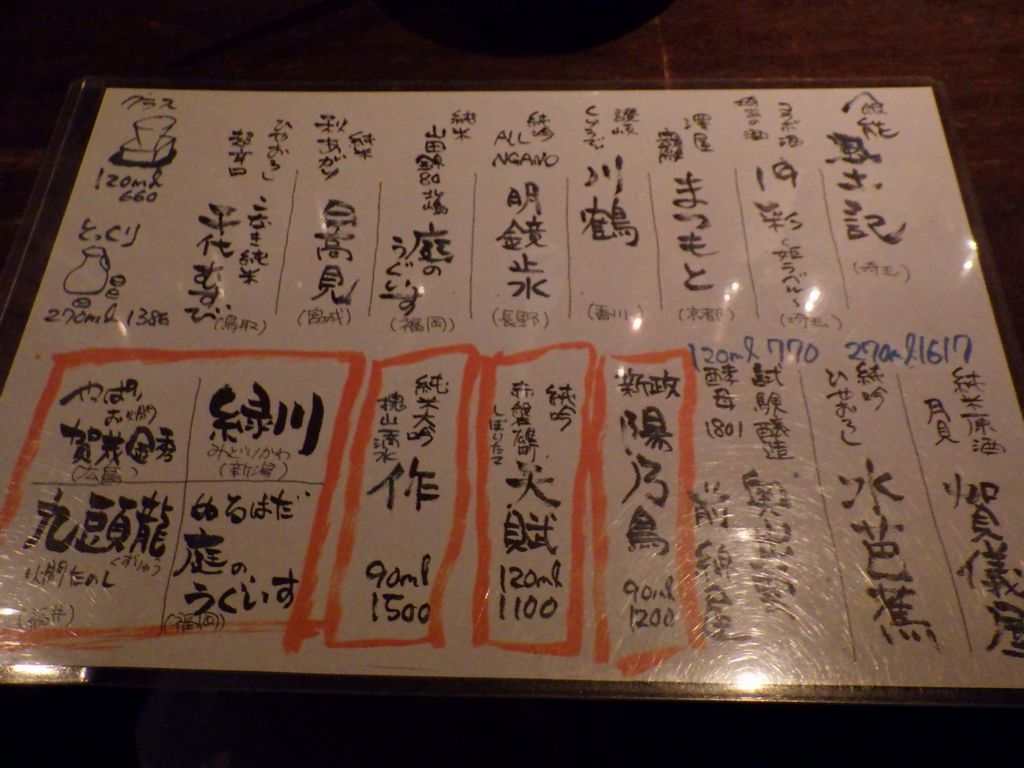 グラス
120ml
660
とっくり
270ml 1386
記
(埼玉)
ヨーグルト酒
19
彩
〜姫ラベル〜
(埼玉)
澤屋
まつもと
(京都)
讃岐
くらうでぃ
川鶴
(香川)
純吟
ALL
NAGANO
明鏡止水
(長野)
純米
山田錦80
庭の
うぐいす
(福岡)
純米
秋あがり
日高見
(宮城)
ひやおろし
超辛口
こなき純米
千代むすび
(鳥取)
120ml 770 270ml 1617
純米原酒
月見
賀儀屋
純吟
ひやおろし
水芭蕉
試験醸造
酵母1801
新政
陽乃鳥
90ml
1200
純吟
しぼりたて
天賦
120ml
1100
純米大吟
槐山一滴水
作
90ml
1500
緑川
みどりかわ
(新潟)
やっぱり
お燗
賀茂金秀
(広島)
ぬるはだ
庭の
うぐいす
(福岡)
九頭龍
くずりゅう
燗たのし
(福井)